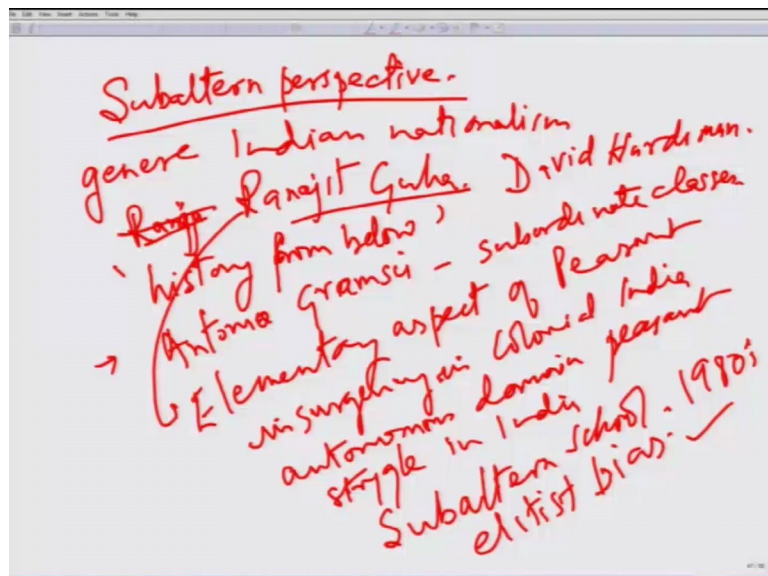 File Edit View Insert Actions Tools Help
Subaltern perspective.
genere Indian nationalism
Ranajit Guha. David Hardiman.
'history from below'
Antonio Gramsci - subordinate classes
→ Elementary aspect of Peasant
insurgency in colonial India
autonomous domain peasant
struggle in India
Subaltern school. 1980's
elitist bias. ✓